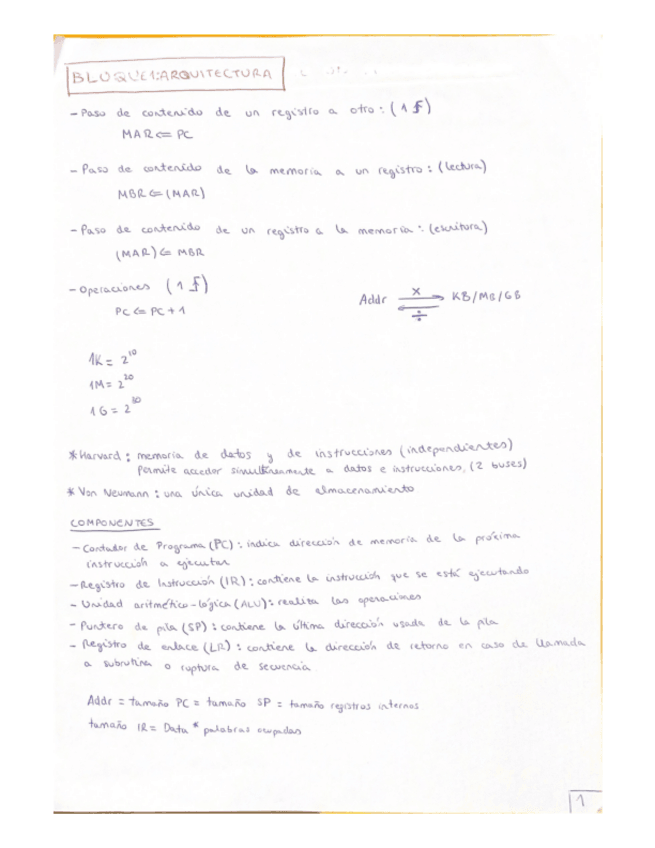 BLOQUE 1: ARQUITECTURA
- Paso de contenido de un registro a otro: (1 f)
MAR ⇐ PC
- Paso de contenido de la memoria a un registro: (lectura)
MBR ⇐ (MAR)
- Paso de contenido de un registro a la memoria: (escritura)
(MAR) ⇐ MBR
- Operaciones (1 f)
PC ⇐ PC + 1
Addr × ÷ KB/MB/GB
1K = 2^10
1M = 2^20
1G = 2^30
* Harvard: memoria de datos y de instrucciones (independientes)
Permite acceder simultáneamente a datos e instrucciones, (2 buses)
* Von Neumann: una única unidad de almacenamiento
COMPONENTES
- Contador de Programa (PC): indica dirección de memoria de la próxima
instrucción a ejecutar
- Registro de Instrucción (IR): contiene la instrucción que se está ejecutando
- Unidad aritmético-lógica (ALU): realiza las operaciones
- Puntero de pila (SP): contiene la última dirección usada de la pila
- Registro de enlace (LR): contiene la dirección de retorno en caso de llamada
a subrutina o ruptura de secuencia
Addr = tamaño PC = tamaño SP = tamaño registros internos
tamaño IR = Data * palabras ocupadas
1